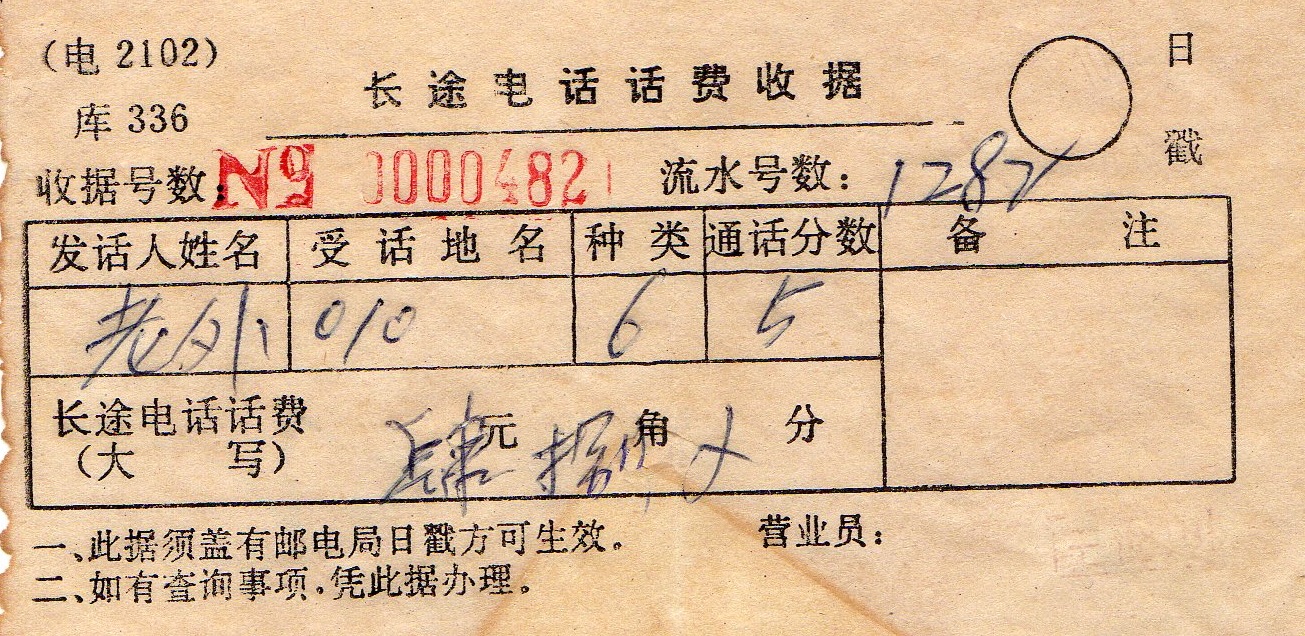 (电 2102)
库 336
长途电话话费收据
日
戳
收据号数: № 0000482
流水号数: 1282
发话人姓名 受话地名 种类 通话分数 备注
老外 010 6 5
长途电话话费 肆元 捌角 分
(大写)
一、此据须盖有邮电局日戳方可生效。
营业员:
二、如有查询事项,凭此据办理。